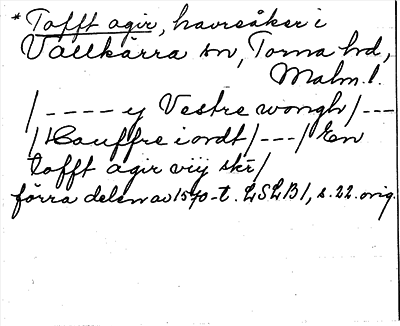 * Tofft agir, havreåker i
Vallkärra sn, Torna hd,
Malm. l.
/ - - - - y Vestre wongh / - - -
/ Hauffre iordt / - - - / En
tofft agir viij skr /
förra delen av 1570-t. LSLB 1, s. 22. orig.